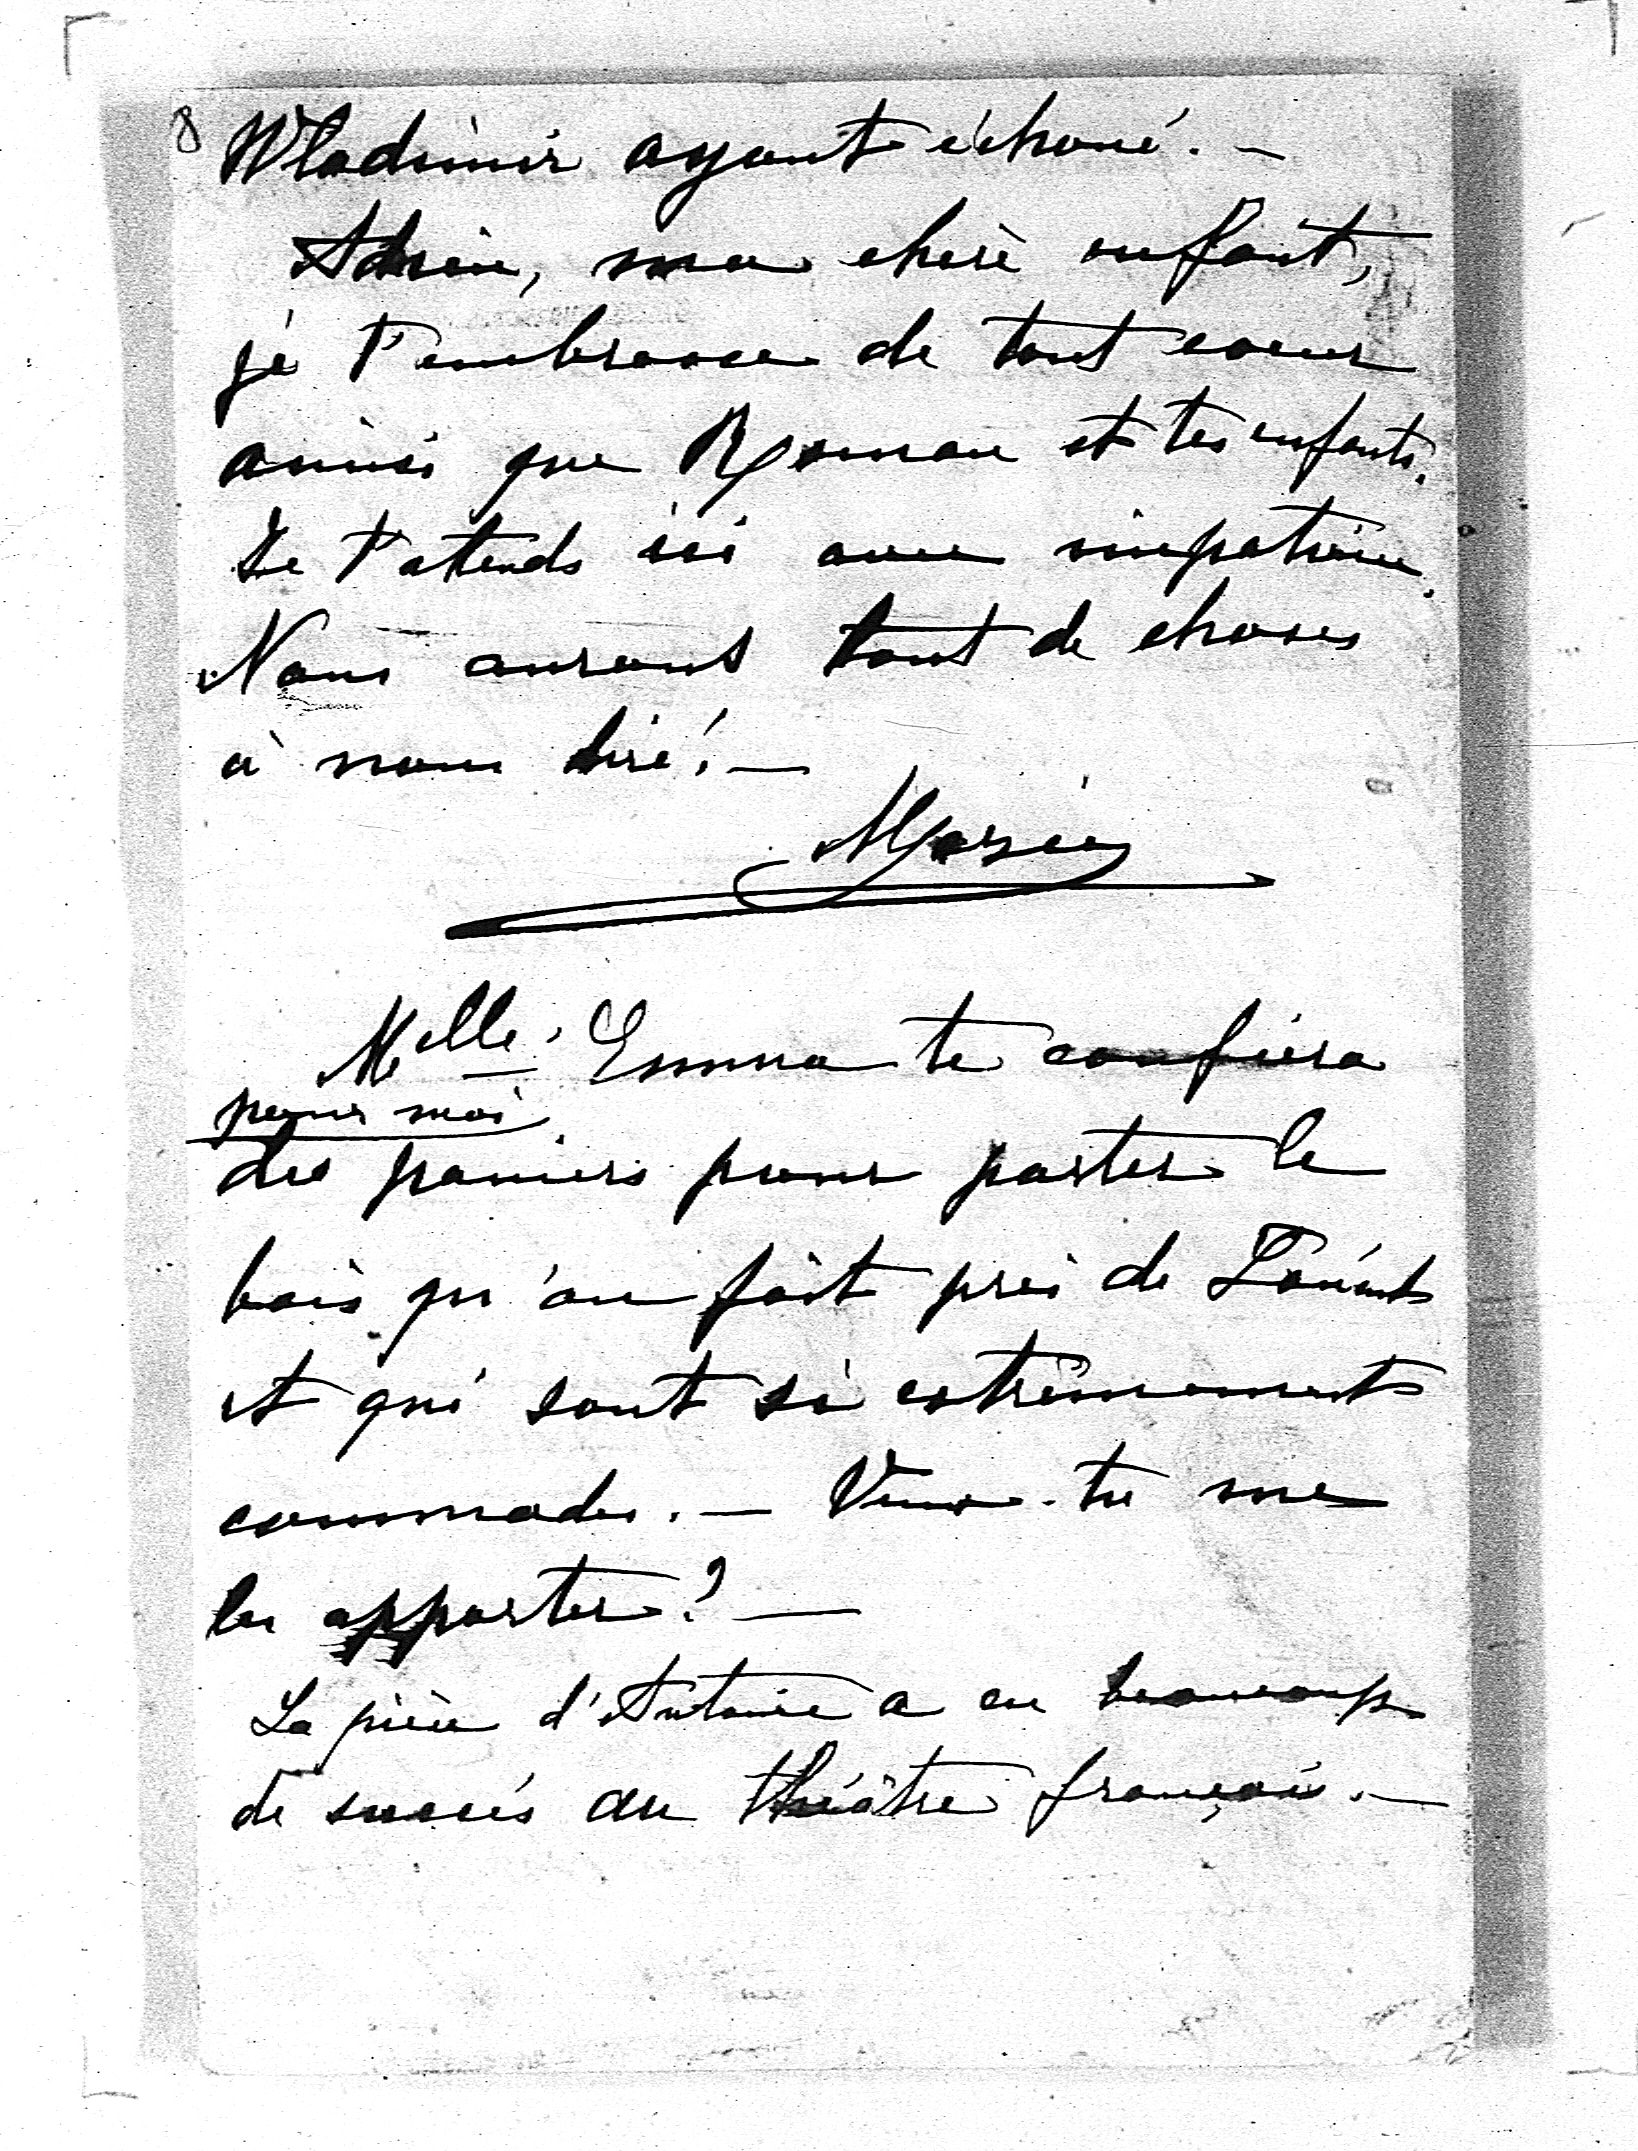 8 Wladimir ayant échoué. —
Adieu, ma chère enfant,
je t'embrasse de tout coeur
ainsi que Roman et tes enfants.
Je t'attends ici avec impatience.
Nous aurons tant de choses
à nous dire! —
Marie
Melle. Emma te confiera
pour moi
des paniers pour porter le
bois qu'on fait près de
et qui sont si extrêmement
commodes. — Veux-tu me
les apporter? —
La pièce d'Antoine a eu beaucoup
de succès au théâtre français. —